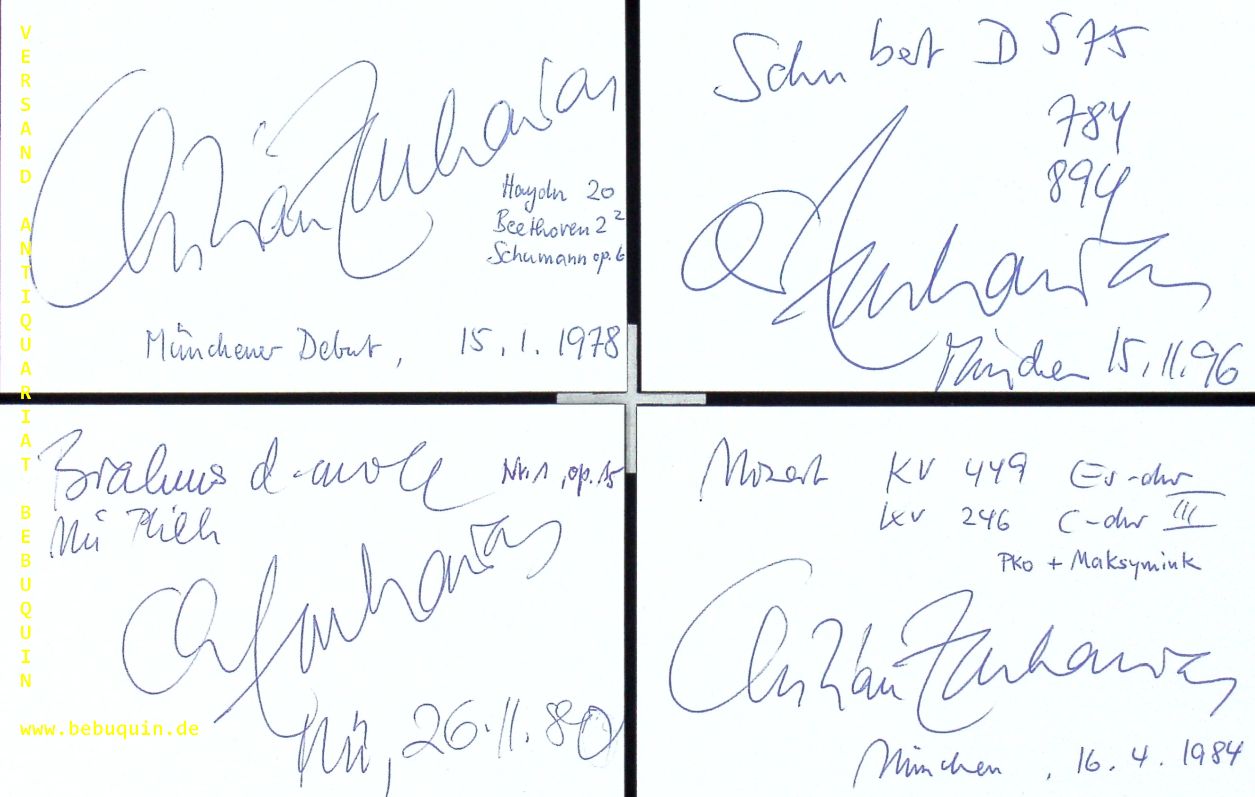 VERSAND ANTIQUARIAT BEBUQUIN
www.bebuquin.de
Christian Zacharias
Haydn 20
Beethoven 2 2
Schumann op. 6
Münchener Debut, 15.1.1978
Schubert D 575
784
894
Ch Zacharias
München 15.11.96
Brahms d-moll Nr. 1, op. 15
Mü Phil
Ch Zacharias
Mü, 26.11.80
Mozart KV 449 Es-dur
KV 246 C-dur III
PKO + Maksymiuk
Christian Zacharias
München, 16.4.1984